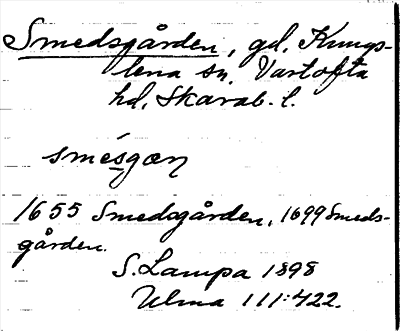 Smedsgården, gd, Kungs-
lena sn, Vartofta
hd, Skarab. l.
smésgæn
1655 Smedsgården, 1699 Smeds-
gården.
S. Lampa 1898
Ulma 111:422.